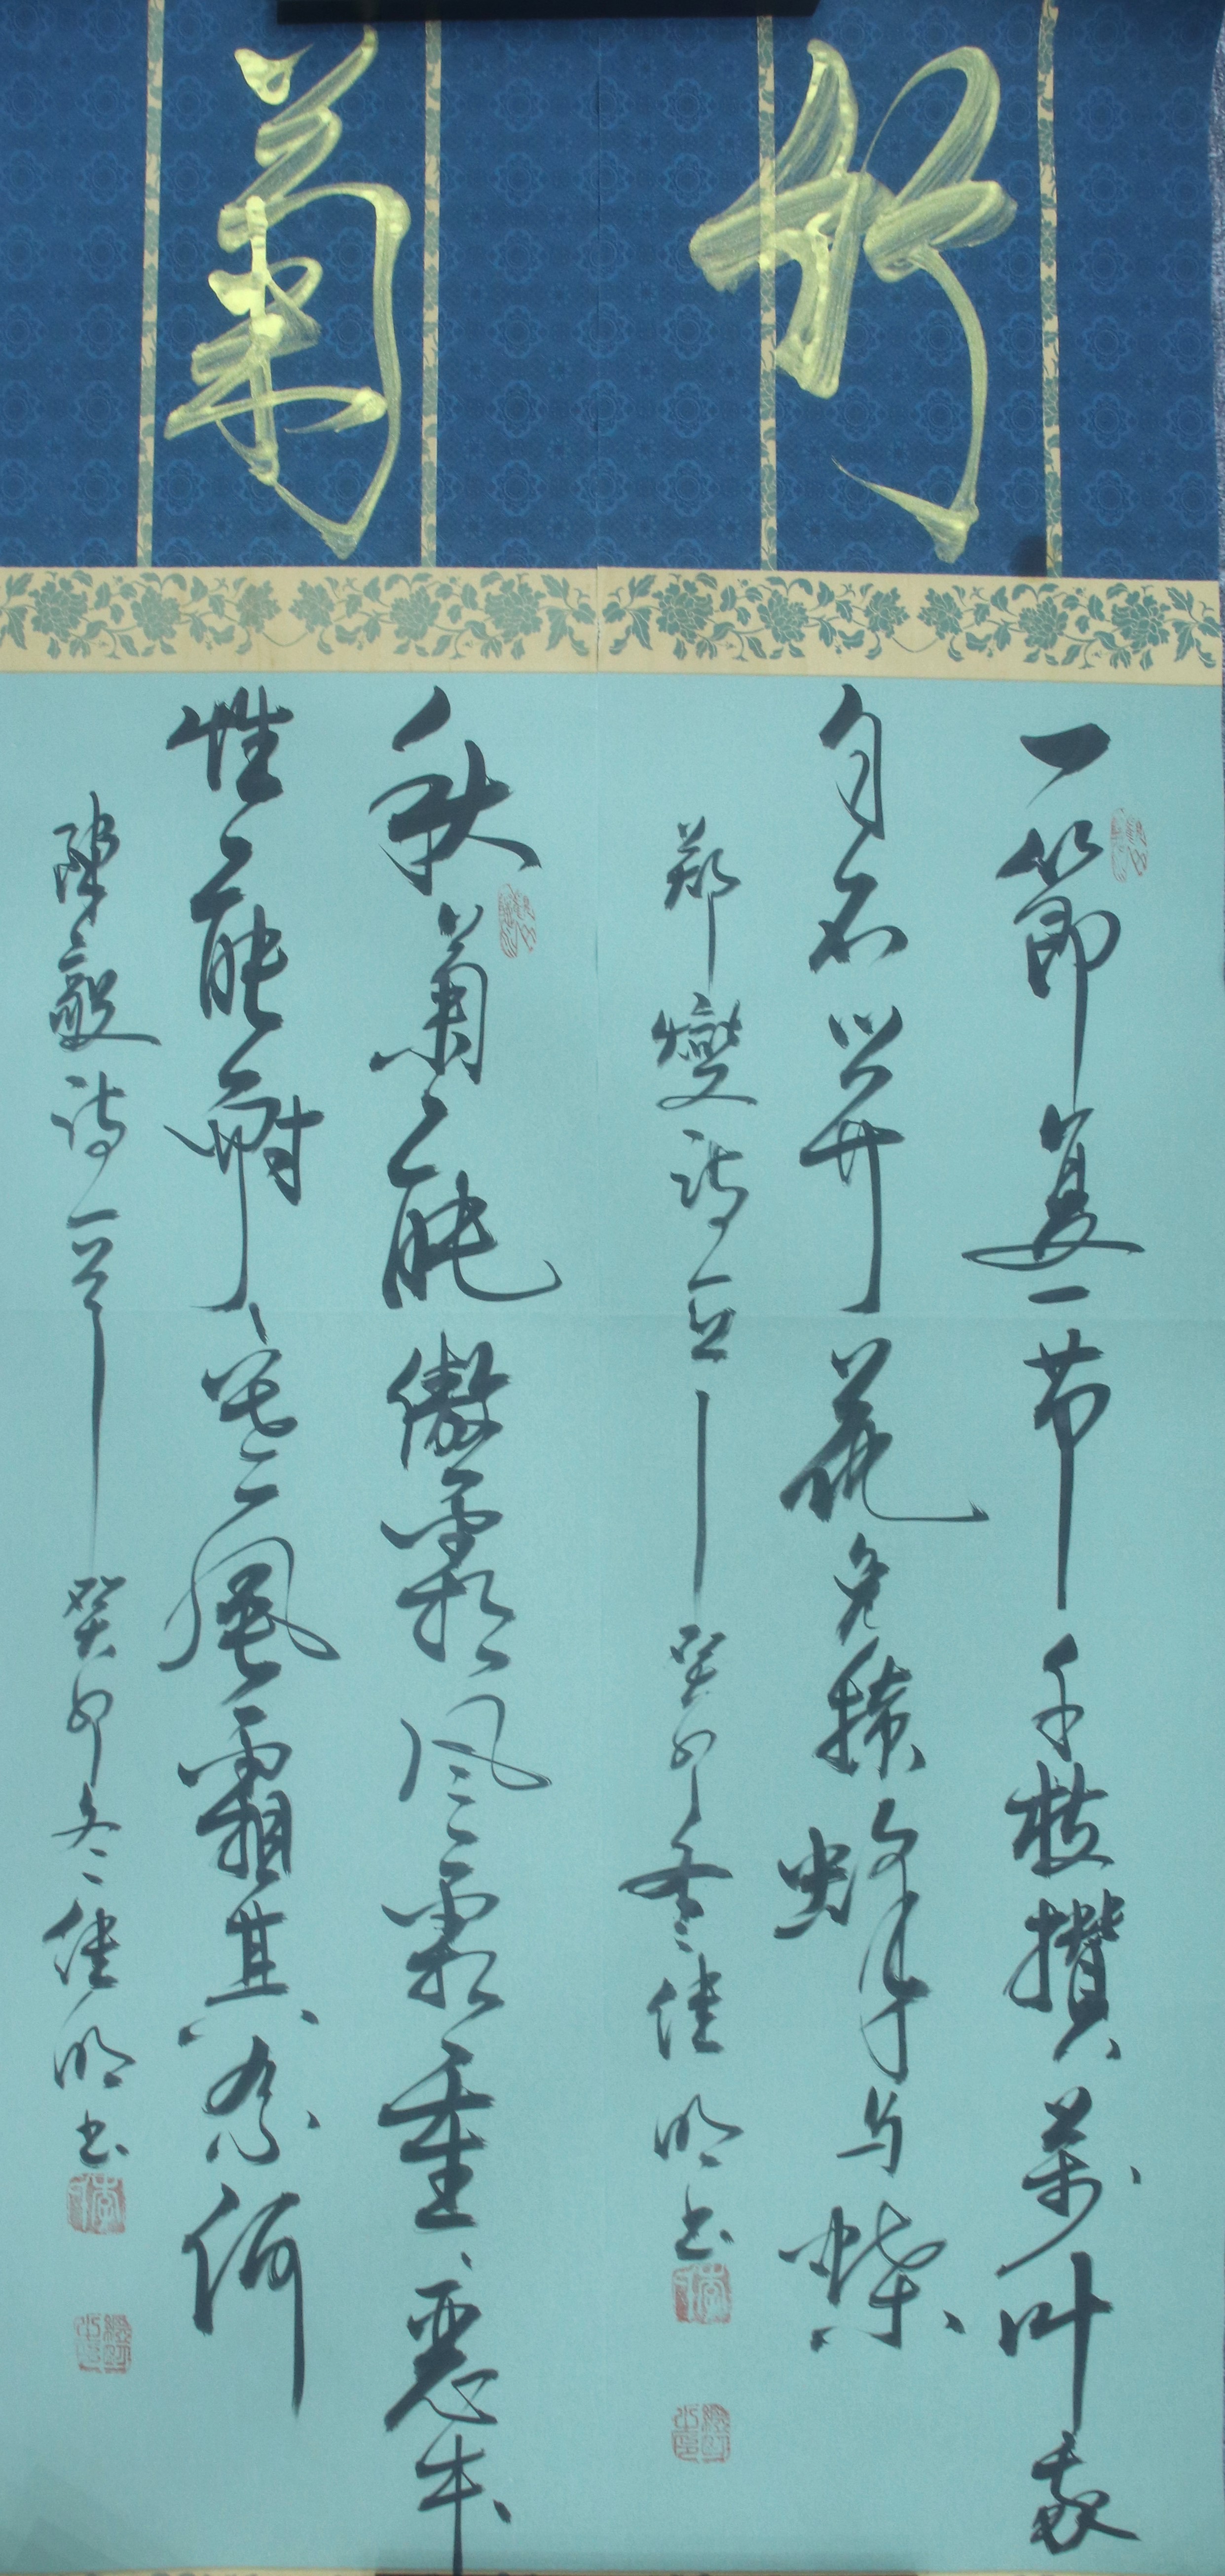 竹
一節复一节千枝攢萬叶我
自不开花免撩蜂与蝶
鄭燮詩一首癸卯冬佳明书
菊
秋菊能傲霜风霜重々惡本
性能耐寒風霜其奈何
陳毅詩一首癸卯冬佳明书